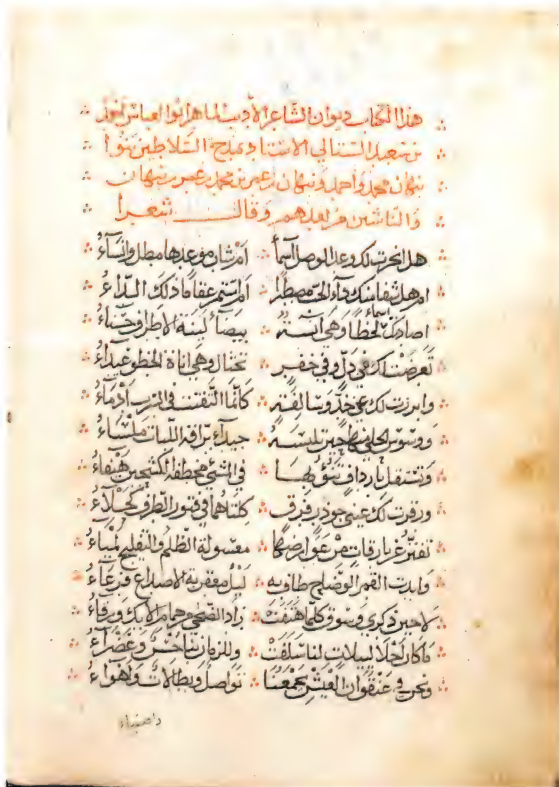 هذا الكتاب ديوان الشاعر الأديب الماهر أبو العباس أحمد
بن سعيد الستالي الاستاد ومدح السلاطين بنوا
نبهان محمد واحمد ونبهان بن عمر بن محمد عمر بن نبهان
والناشين من بعدهم وقال شعرا
هل انجزت لك وعد الوصل أسمآءُ ∴ أم شان موعدها مطل وانسآءُ
ام هل شفا منك دآء الحب مصطبرًا ∴ ام استمر عقامًا ذلك الدآءُ
اصادتك لحظًا اسماء وهي آنسة ∴ بيضآء لينة الاطراف حسّاءُ
تعرضت لك في دل وفي خفر ∴ تختال وهي اناة الخطو غيدآءُ
وابرزت لك عن خد وسالفة ∴ كأنما التفتت في السرب أدمآءُ
ووسوس الحلي منها حين تلبسه ∴ جيدآء براقة اللبات ملساءُ
وتستقل بارداف تنوء بها ∴ في المشي مخطفة الكشحين هيفاءُ
ورقرقت لك عيني جوذر فرق ∴ كلتاهما في فتور الطرف كحلآءُ
تفتر عن بارقات من عوارضها ∴ معسولة الظلم والتفليج لمياءُ
وابدت القمر الوضاح طاويه ∴ ليلًا معقربة الاصداغ فرعآءُ
لاحين ذكرى وسوق كلما هتفت ∴ راد الضحى من حمام الايك ورقاءُ
ما كان احلا ليلات لنا سلفت ∴ وللزمان بنا حسن وغضرآءُ
ونحن في عنفوان العيش يجمعنا ∴ تواصل وبطالات واهواءُ